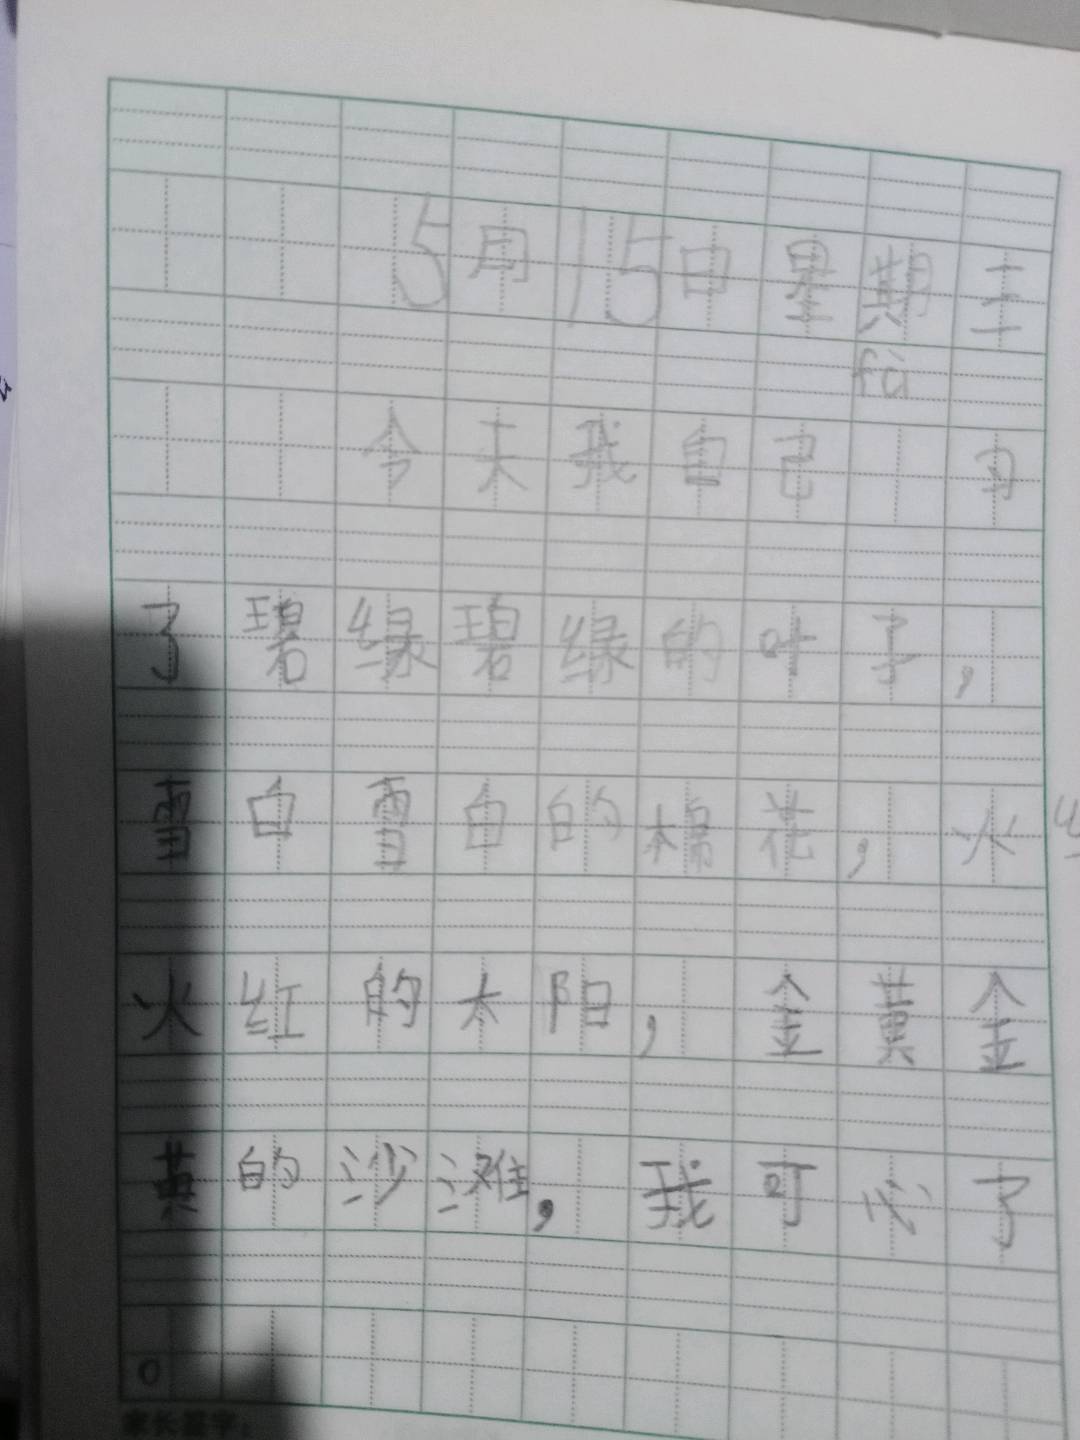 5月15日星期三
fā
今天我自己 月
了碧绿碧绿的叶子，
雪白雪白的棉花，火红
火红的太阳，金黄金
黄的沙滩，我可心了
。
家长签字：